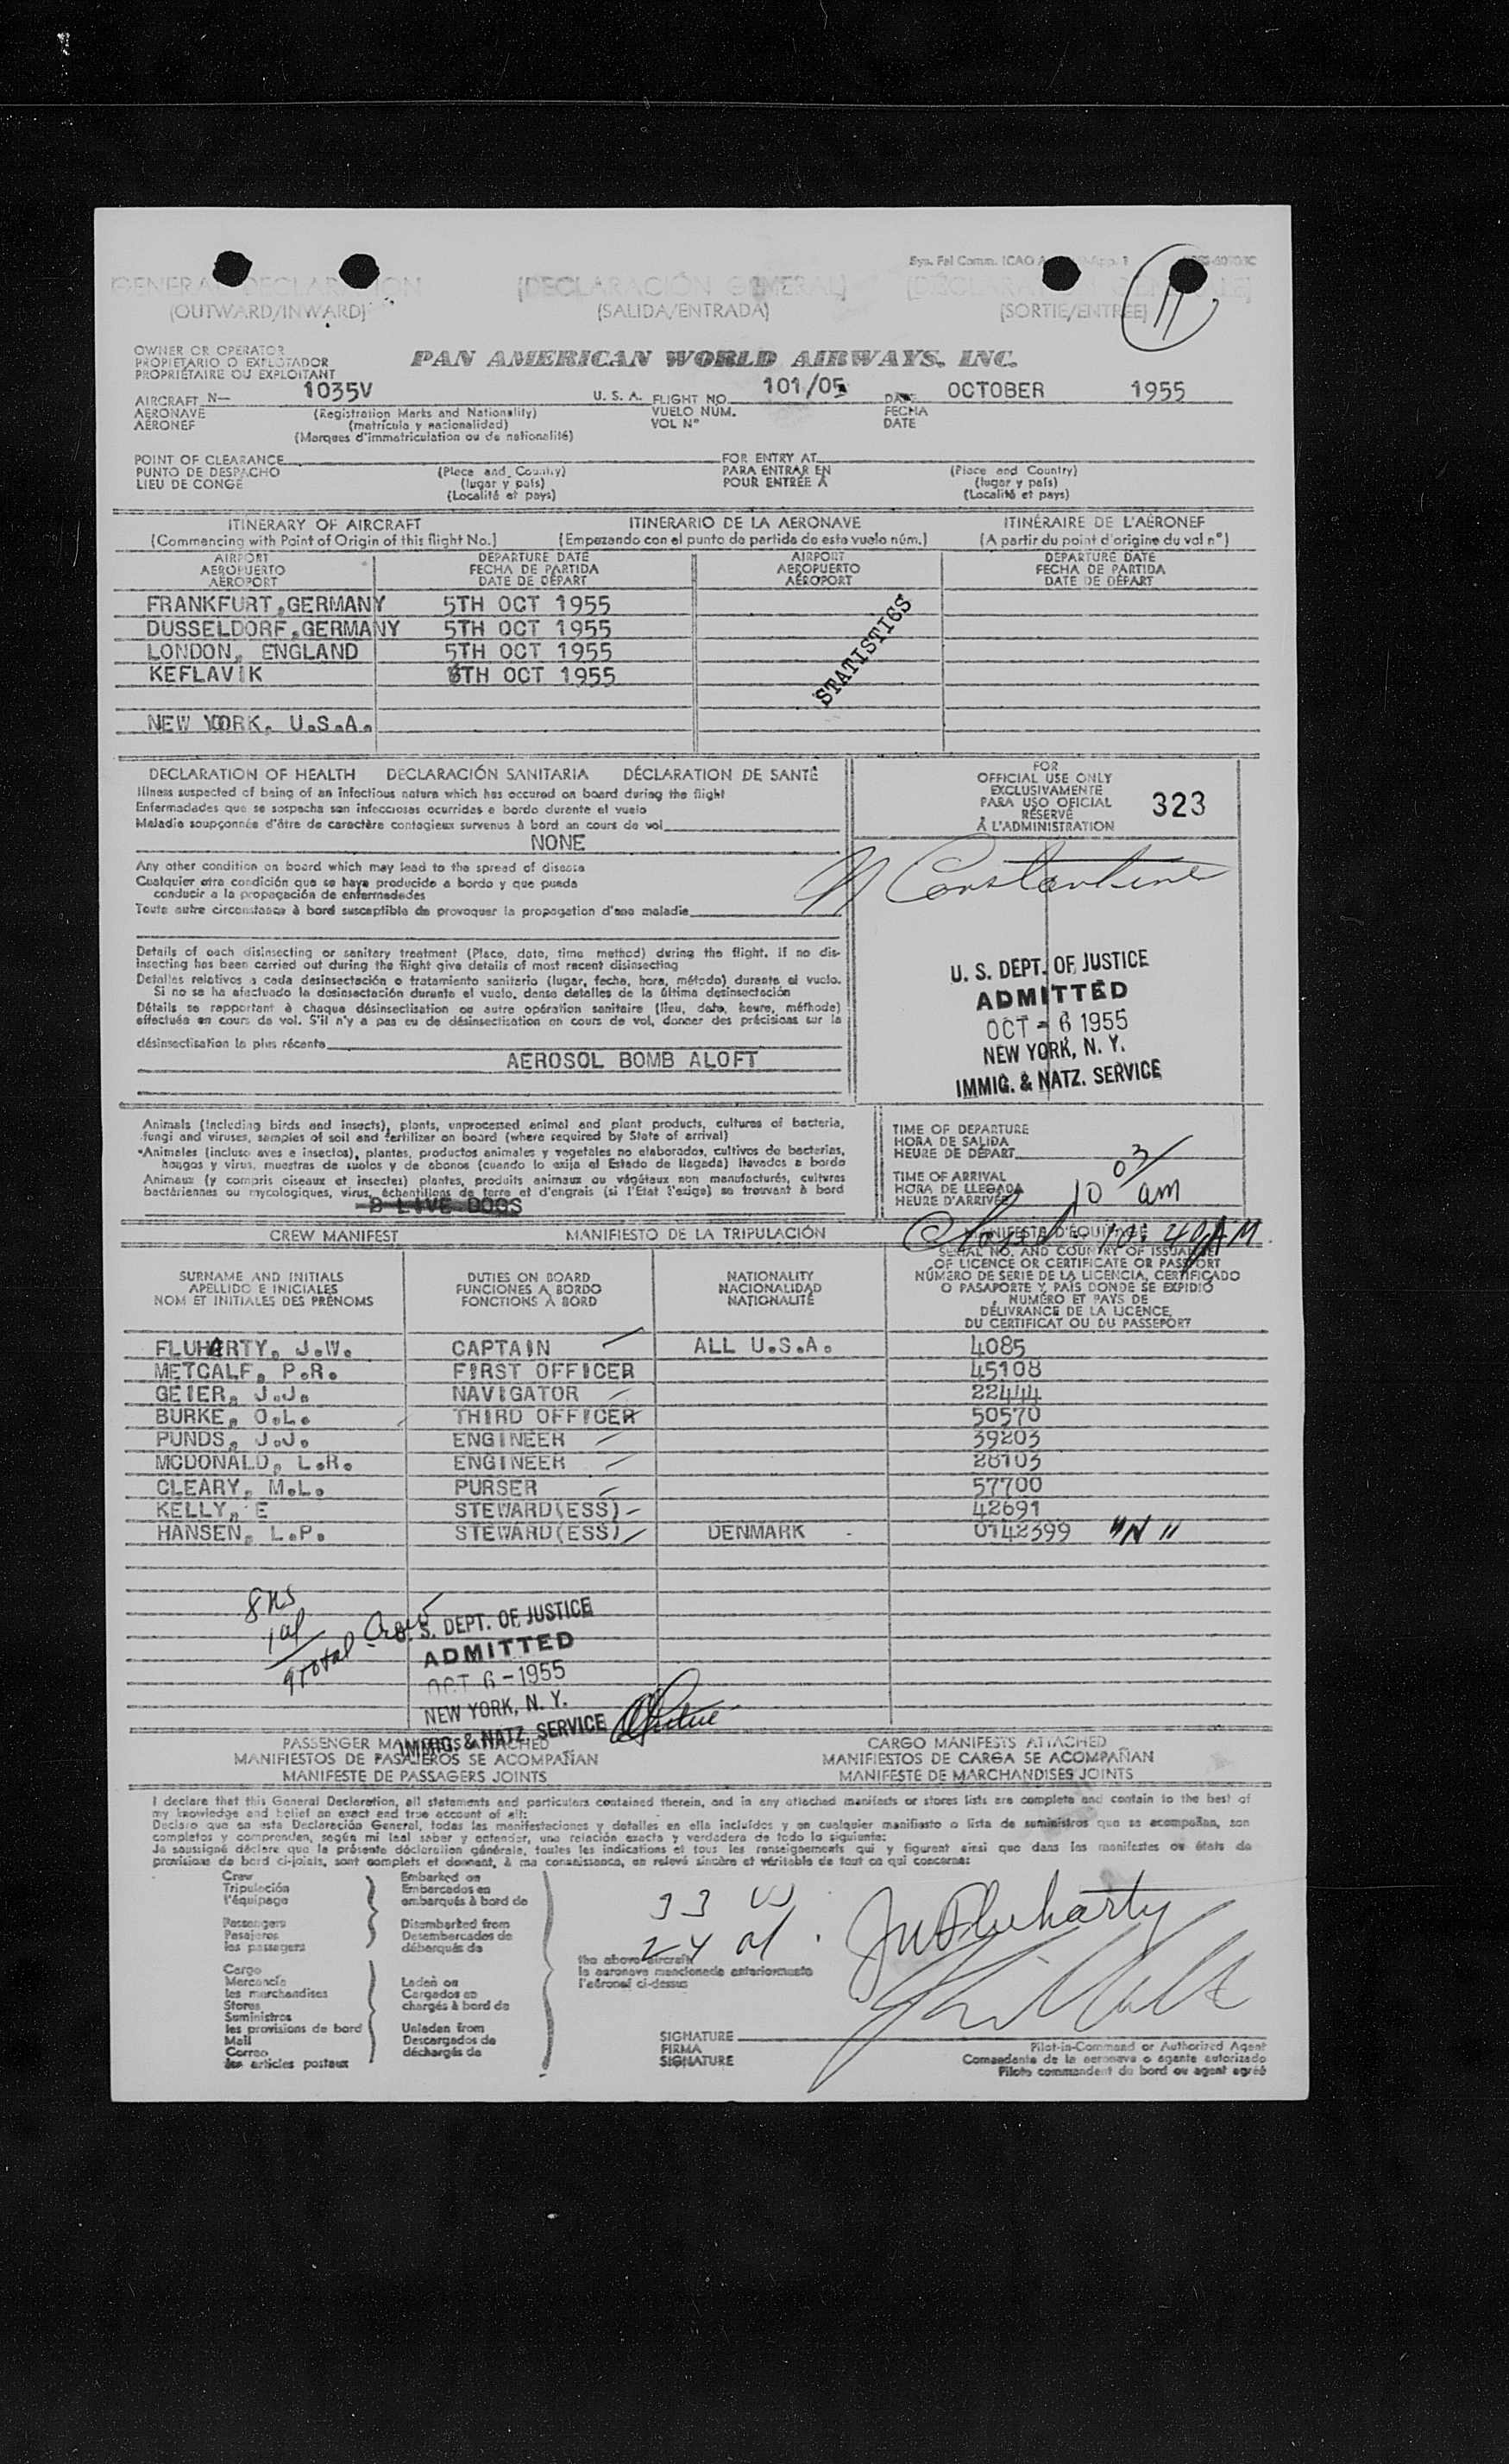 Sys. Fal Comm. ICAO
GENERAL DECLARATION (DECLARACIÓN GENERAL) (DÉCLARATION GÉNÉRALE)
(OUTWARD/INWARD) (SALIDA/ENTRADA) (SORTIE/ENTRÉE)
11
OWNER OR OPERATOR
PROPIETARIO O EXPLOTADOR
PROPRIÉTAIRE OU EXPLOITANT
PAN AMERICAN WORLD AIRWAYS, INC.
AIRCRAFT N— 1035V U. S. A. FLIGHT NO. 101/05 DATE OCTOBER 1955
AERONAVE (Registration Marks and Nationality) VUELO NUM. FECHA
AÉRONEF (matrícula y nacionalidad) VOL N° DATE
(Marques d'immatriculation ou de nationalité)
POINT OF CLEARANCE FOR ENTRY AT
PUNTO DE DESPACHO (Place and Country) PARA ENTRAR EN (Place and Country)
LIEU DE CONGÉ (lugar y país) POUR ENTRÉE À (lugar y país)
(Localité et pays) (Localité et pays)
ITINERARY OF AIRCRAFT ITINERARIO DE LA AERONAVE ITINÉRAIRE DE L'AÉRONEF
(Commencing with Point of Origin of this flight No.) (Empezando con el punto de partida de este vuelo núm.) (A partir du point d'origine du vol n°)
AIRPORT DEPARTURE DATE AIRPORT DEPARTURE DATE
AEROPUERTO FECHA DE PARTIDA AEROPUERTO FECHA DE PARTIDA
AÉROPORT DATE DE DÉPART AÉROPORT DATE DE DÉPART
FRANKFURT,GERMANY 5TH OCT 1955
DUSSELDORF,GERMANY 5TH OCT 1955
LONDON, ENGLAND 5TH OCT 1955
KEFLAVIK 6TH OCT 1955
NEW YORK, U.S.A.
STATISTICS
DECLARATION OF HEALTH DECLARACIÓN SANITARIA DÉCLARATION DE SANTÉ
Illness suspected of being of an infectious nature which has occured on board during the flight
Enfermedades que se sospecha son infecciosas ocurridas a bordo durante el vuelo
Maladie soupçonnée d'être de caractère contagieux survenus à bord an cours de vol
NONE
Any other condition on board which may lead to the spread of disease
Cualquier otra condición que se haya producido a bordo y que pueda
conducir a la propagación de enfermedades
Toute autre circonstance à bord susceptible de provoquer la propagation d'une maladie
Details of each disinsecting or sanitary treatment (Place, date, time method) during the flight. If no dis-
insecting has been carried out during the flight give details of most recent disinsecting
Detalles relativos a cada desinsectación o tratamiento sanitario (lugar, fecha, hora, método) durante el vuelo.
Si no se ha efectuado la desinsectación durante el vuelo, dense detalles de la última desinsectación
Détails se rapportant à chaque désinsectisation ou autre opération sanitaire (lieu, date, heure, méthode)
effectuée en cours de vol. S'il n'y a pas eu de désinsectisation en cours de vol, donner des précisions sur la
désinsectisation la plus récente
AEROSOL BOMB ALOFT
FOR
OFFICIAL USE ONLY
EXCLUSIVAMENTE
PARA USO OFICIAL
RÉSERVÉ
À L'ADMINISTRATION
323
N Constantine
U. S. DEPT. OF JUSTICE
ADMITTED
OCT - 6 1955
NEW YORK, N. Y.
IMMIG. & NATZ. SERVICE
Animals (Including birds and insects), plants, unprocessed animal and plant products, cultures of bacteria,
fungi and viruses, samples of soil and fertilizer on board (where required by State of arrival)
Animales (incluso aves e insectos), plantas, productos animales y vegetales no elaborados, cultivos de bacterias,
hongos y virus, muestras de suelos y de abonos (cuando lo exija el Estado de llegada) llevados a bordo
Animaux (y compris oiseaux et insectes) plantes, produits animaux ou végétaux non manufacturés, cultures
bactériennes ou mycologiques, virus, échantillons de terre et d'engrais (si l'Etat l'exige) se trouvant à bord
LIVE DOGS
TIME OF DEPARTURE
HORA DE SALIDA
HEURE DE DÉPART
TIME OF ARRIVAL
HORA DE LLEGADA
HEURE D'ARRIVÉE
10 03 am
10: 40 AM
CREW MANIFEST MANIFIESTO DE LA TRIPULACIÓN MANIFESTE D'ÉQUIPAGE
SURNAME AND INITIALS DUTIES ON BOARD NATIONALITY
APELLIDO E INICIALES FUNCIONES A BORDO NACIONALIDAD
NOM ET INITIALES DES PRÉNOMS FONCTIONS À BORD NATIONALITÉ
SERIAL NO. AND COUNTRY OF ISSUANCE
OF LICENCE OR CERTIFICATE OR PASSPORT
NÚMERO DE SERIE DE LA LICENCIA, CERTIFICADO
O PASAPORTE Y PAÍS DONDE SE EXPIDIÓ
NUMÉRO ET PAYS DE
DÉLIVRANCE DE LA LICENCE,
DU CERTIFICAT OU DU PASSEPORT
FLUHARTY, J.W. CAPTAIN ALL U.S.A. 4085
METCALF, P.R. FIRST OFFICER 45108
GEIER, J.J. NAVIGATOR 22444
BURKE, O.L. THIRD OFFICER 50570
PUNDS, J.J. ENGINEER 39203
MCDONALD, L.R. ENGINEER 28103
CLEARY, M.L. PURSER 57700
KELLY, E STEWARD(ESS) 42691
HANSEN, L.P. STEWARD(ESS) DENMARK 0142399 "N"
8 US
1 al
9 Total Crew
U. S. DEPT. OF JUSTICE
ADMITTED
OCT 6 - 1955
NEW YORK, N. Y.
IMMIG. & NATZ. SERVICE
PASSENGER MANIFESTS ATTACHED CARGO MANIFESTS ATTACHED
MANIFIESTOS DE PASAJEROS SE ACOMPAÑAN MANIFIESTOS DE CARGA SE ACOMPAÑAN
MANIFESTE DE PASSAGERS JOINTS MANIFESTE DE MARCHANDISES JOINTS
I declare that this General Declaration, all statements and particulars contained therein, and in any attached manifests or stores lists are complete and contain to the best of
my knowledge and belief an exact and true account of all:
Declaro que en esta Declaración General, todas las manifestaciones y detalles en ella incluídos y en cualquier manifiesto o lista de suministros que se acompañan, son
completos y comprenden, según mi leal saber y entender, una relación exacta y verdadera de todo lo siguiente:
Je soussigné déclare que la présente déclaration générale, toutes les indications et tous les renseignements qui y figurent ainsi que dans les manifestes ou états de
provisions de bord ci-joints, sont complets et donnent, à ma connaissance, un relevé sincère et véritable de tout ce qui concerne:
Crew Embarked on
Tripulación Embarcados en
l'équipage embarqués à bord de
Passengers Disembarked from
Pasajeros Desembarcados de
les passagers débarqués de
Cargo
Mercancía Laden on
les marchandises Cargados en
Stores chargés à bord de
Suministros
les provisions de bord Unladen from
Mail Descargados de
Correo déchargés de
les articles postaux
33 US
24 al
the above aircraft
la aeronave mencionada anteriormente
l'aéronef ci-dessus
JW Fluharty
SIGNATURE
FIRMA
SIGNATURE
Pilot-in-Command or Authorized Agent
Comandante de la aeronave o agente autorizado
Pilote commandant du bord ou agent agréé